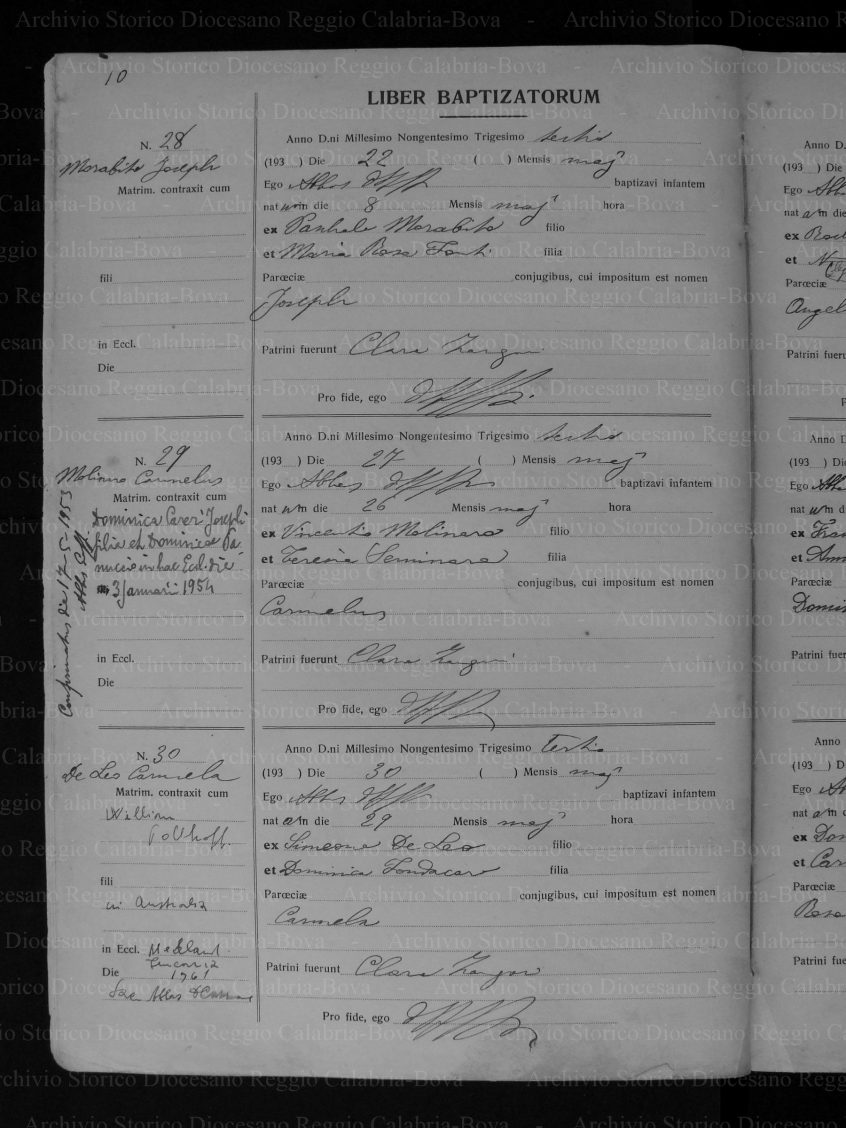 10
LIBER BAPTIZATORUM
N. 28
Morabito Joseph
Matrim. contraxit cum
fili
in Eccl.
Die
Anno D.ni Millesimo Nongentesimo Trigesimo tertio
(193 ) Die 22 ( ) Mensis maj
Ego Abbas baptizavi infantem
nat um die 8 Mensis maj hora
ex Morabito filio
et Maria Rosa Fonti filia
Parœciæ conjugibus, cui impositum est nomen
Joseph
Patrini fuerunt Clara
Pro fide, ego
N. 29
Molinaro Carmelus
Matrim. contraxit cum
Dominica Joseph
filia et Dominicæ Pa
nuccio in hac Eccl. die
3 Januarii 1954
in Eccl.
Die
Confirmatus die 17-5-1953
Abbas
Anno D.ni Millesimo Nongentesimo Trigesimo tertio
(193 ) Die 27 ( ) Mensis maj
Ego Abbas baptizavi infantem
nat um die 26 Mensis maj hora
ex Vincentio Molinaro filio
et Teresia Seminara filia
Parœciæ conjugibus, cui impositum est nomen
Carmelus
Patrini fuerunt Clara
Pro fide, ego
N. 30
De Leo Carmela
Matrim. contraxit cum
William
fili
in Australia
in Eccl.
Die 1961
Sac Abbas
Anno D.ni Millesimo Nongentesimo Trigesimo tertio
(193 ) Die 30 ( ) Mensis maj
Ego Abbas baptizavi infantem
nat am die 29 Mensis maj hora
ex Simeone De Leo filio
et Dominica Fondacaro filia
Parœciæ conjugibus, cui impositum est nomen
Carmela
Patrini fuerunt Clara
Pro fide, ego
Anno D.
(193 ) Die
Ego
nat am die
ex
et
Parœciæ
Angel
Patrini fueru
Anno D
(193 ) Die
Ego
nat um d
ex Fran
et Ann
Parœciæ
Domin
Patrini fuer
Anno
(193 ) D
Ego
nat am d
ex Dom
et Car
Parœciæ
Rosa
Patrini fue
Archivio Storico Diocesano Reggio Calabria-Bova